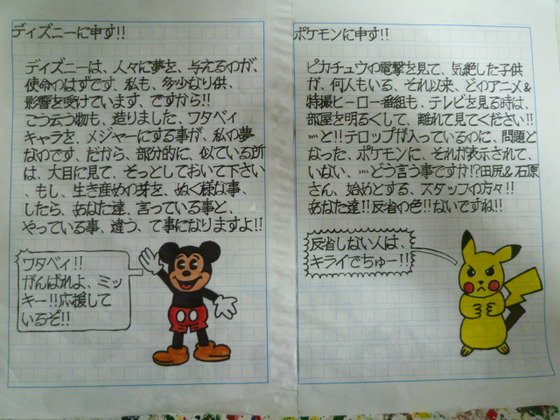 ディズニーに申す!!
ディズニーは、人々に夢を、与えるのが、
使命のはずです、私も、多少なり共、
影響を受けています、ですから!!
こう云う物も、造りました、ワタベイ
キャラを、メジャーにする事が、私の夢
なのです、だから、部分的に、似ている所
は、大目に見て、そっとしておいて下さい
、もし、生き産めの芽を、ぬく様な事、
したら、あなた達、言っている事と、
やっている事、違う、て事になりますよ!!
ワタベイ!!
がんばれよ、ミッ
キー!!応援して
いるぞ!!
ポケモンに申す!!
ピカチュウの電撃を見て、気絶した子供
が、何人もいる、それ以来、どのアニメ&
特撮ヒーロー番組も、テレビを見る時は、
部屋を明るくして、離れて見てください!!
…と!!テロップが入っているのに、問題と
なった、ポケモンに、それが表示されて、
いない、…どう言う事ですか!?田尻&石原
さん、始めとする、スタッフの方々!!
あなた達!!反省の色!!ないですね!!
反省しない人は、
キライでちゅー!!